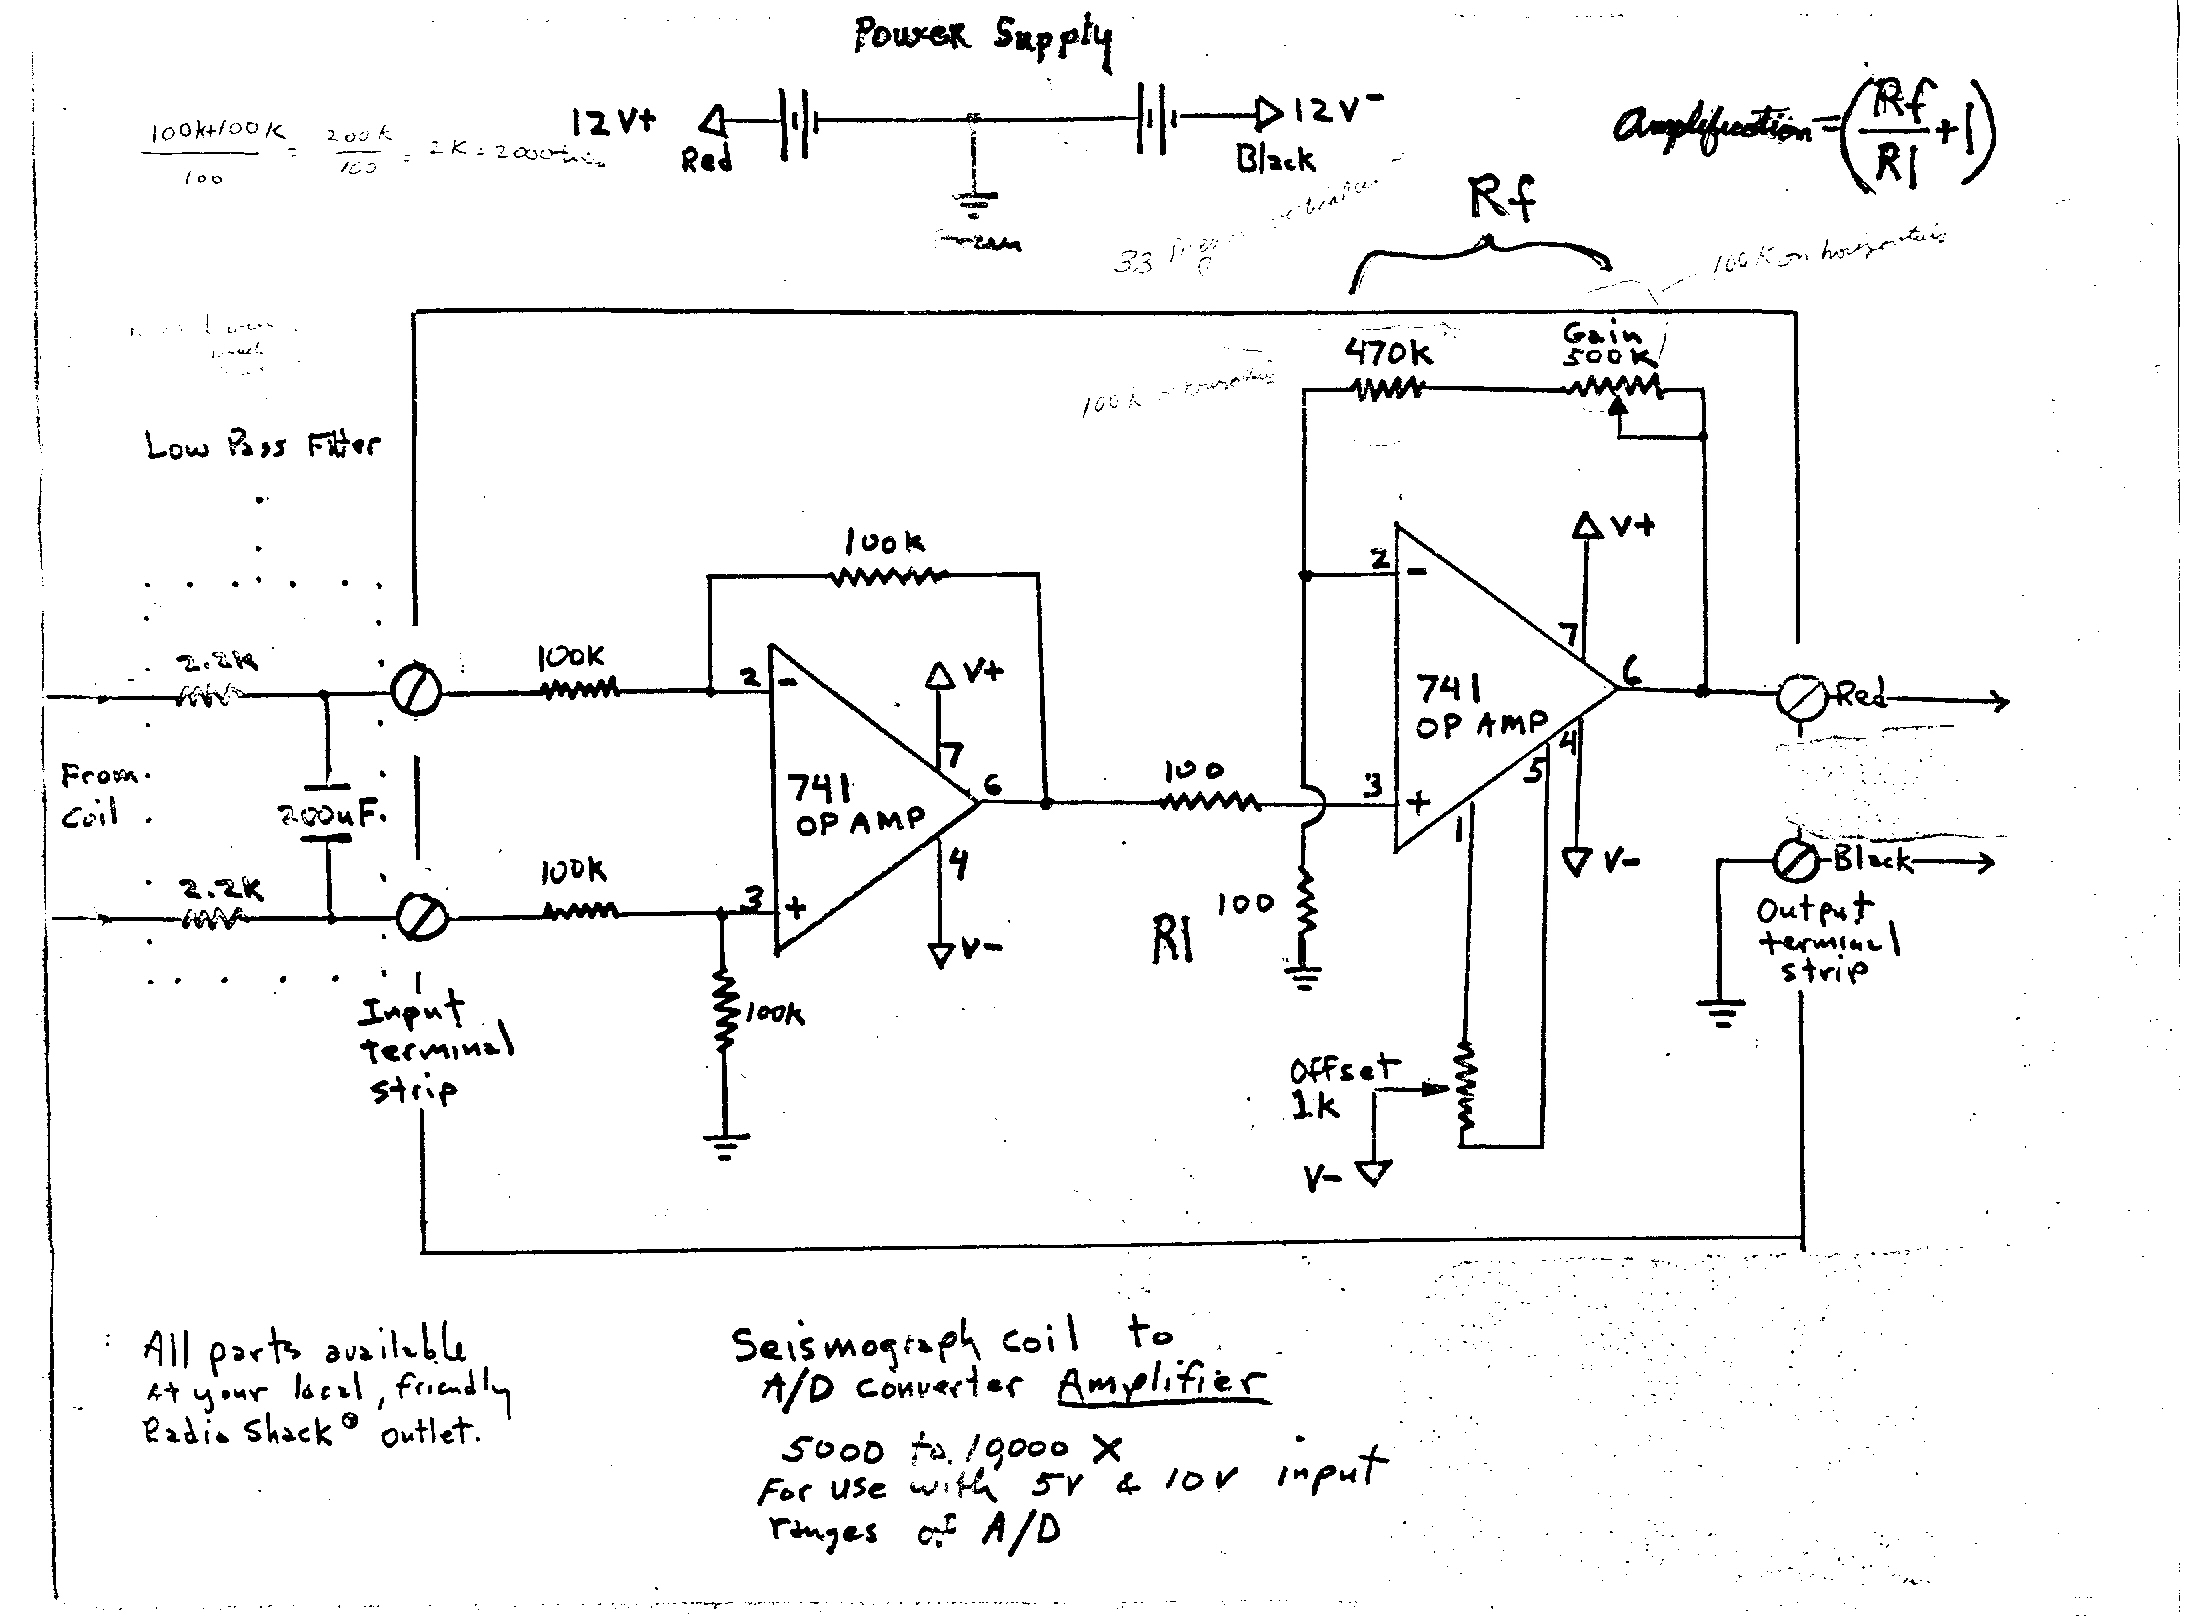 Power Supply
100k+100k
100
=
200k
100
= 2K = 2000
12V+
Red
12V-
Black
Amplification = (Rf/R1 + 1)
Rf
33
100K on horizontals
100K
470k
Gain
500k
Low Pass Filter
100k
2
-
V+
7
2.2k
100k
2
-
V+
7
741
OP AMP
6
Red
741
OP AMP
6
4
5
100
3
+
1
V-
From
Coil
200uF
2.2k
100k
3
+
4
V-
100k
R1
100
Black
Output
terminal
strip
Input
terminal
strip
Offset
1k
V-
All parts available
At your local, friendly
Radio Shack® outlet.
Seismograph coil to
A/D converter Amplifier
5000 to 10,000 X
For use with 5V & 10V input
ranges of A/D